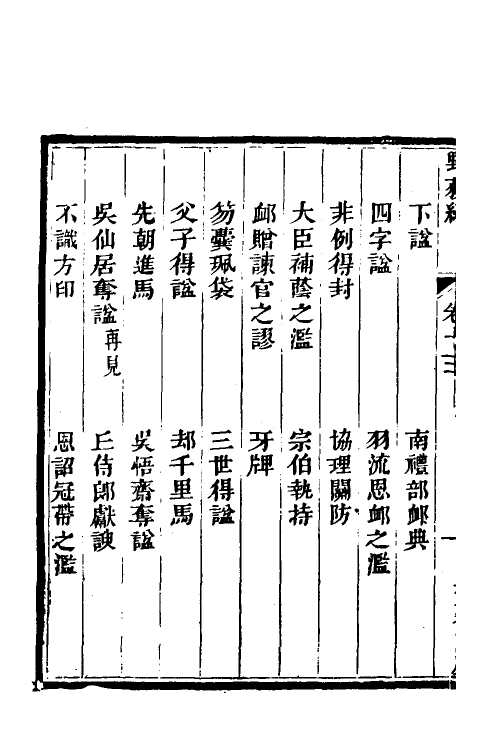 下謚　南禮部卹典
四字謚　羽流恩卹之濫
非例得封　協理關防
大臣補蔭之濫　宗伯執持
卹贈諫官之謬　牙牌
笏囊珮袋　三世得謚
父子得謚　却千里馬
先朝進馬　吳悟齋奪謚
吳仙居奪謚再見　丘侍郎獻諛
不識方印　恩詔冠帶之濫